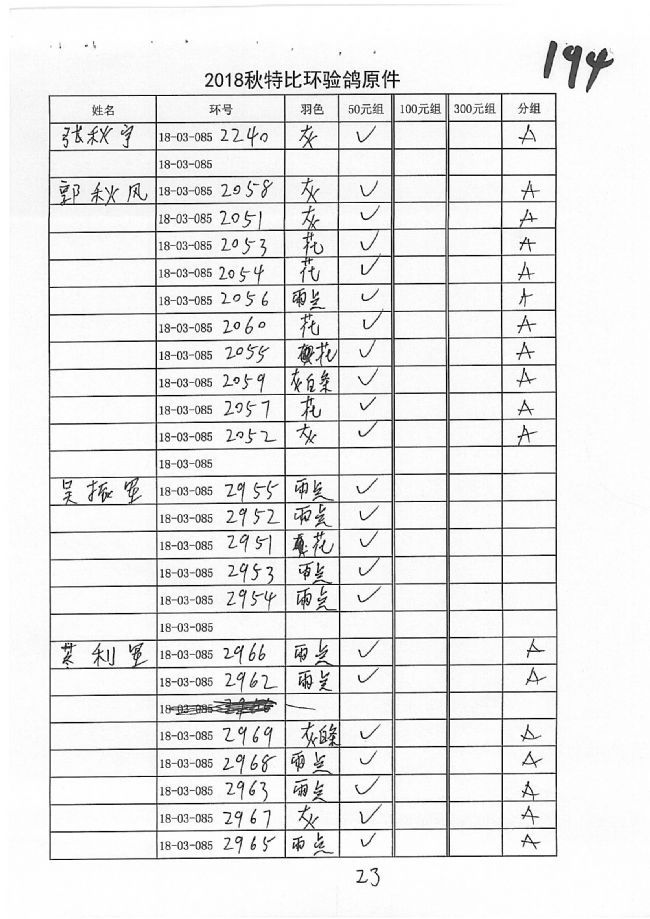 194
2018秋特比环验鸽原件
姓名 环号 羽色 50元组 100元组 300元组 分组
张秋宇 18-03-085 2240 灰 ✓ A
18-03-085
郭秋风 18-03-085 2058 灰 ✓ A
18-03-085 2051 灰 ✓ A
18-03-085 2053 花 ✓ A
18-03-085 2054 花 ✓ A
18-03-085 2056 雨点 ✓ A
18-03-085 2060 花 ✓ A
18-03-085 2055 花 ✓ A
18-03-085 2059 灰白条 ✓ A
18-03-085 2057 花 ✓ A
18-03-085 2052 灰 ✓ A
18-03-085
吴振军 18-03-085 2955 雨点 ✓
18-03-085 2952 雨点 ✓
18-03-085 2951 花 ✓
18-03-085 2953 雨点 ✓
18-03-085 2954 雨点 ✓
18-03-085
利军 18-03-085 2966 雨点 ✓ A
18-03-085 2962 雨点 ✓ A
18-03-085
18-03-085 2969 灰白条 ✓ A
18-03-085 2968 雨点 ✓ A
18-03-085 2963 雨点 ✓ A
18-03-085 2967 灰 ✓ A
18-03-085 2965 雨点 ✓ A
23